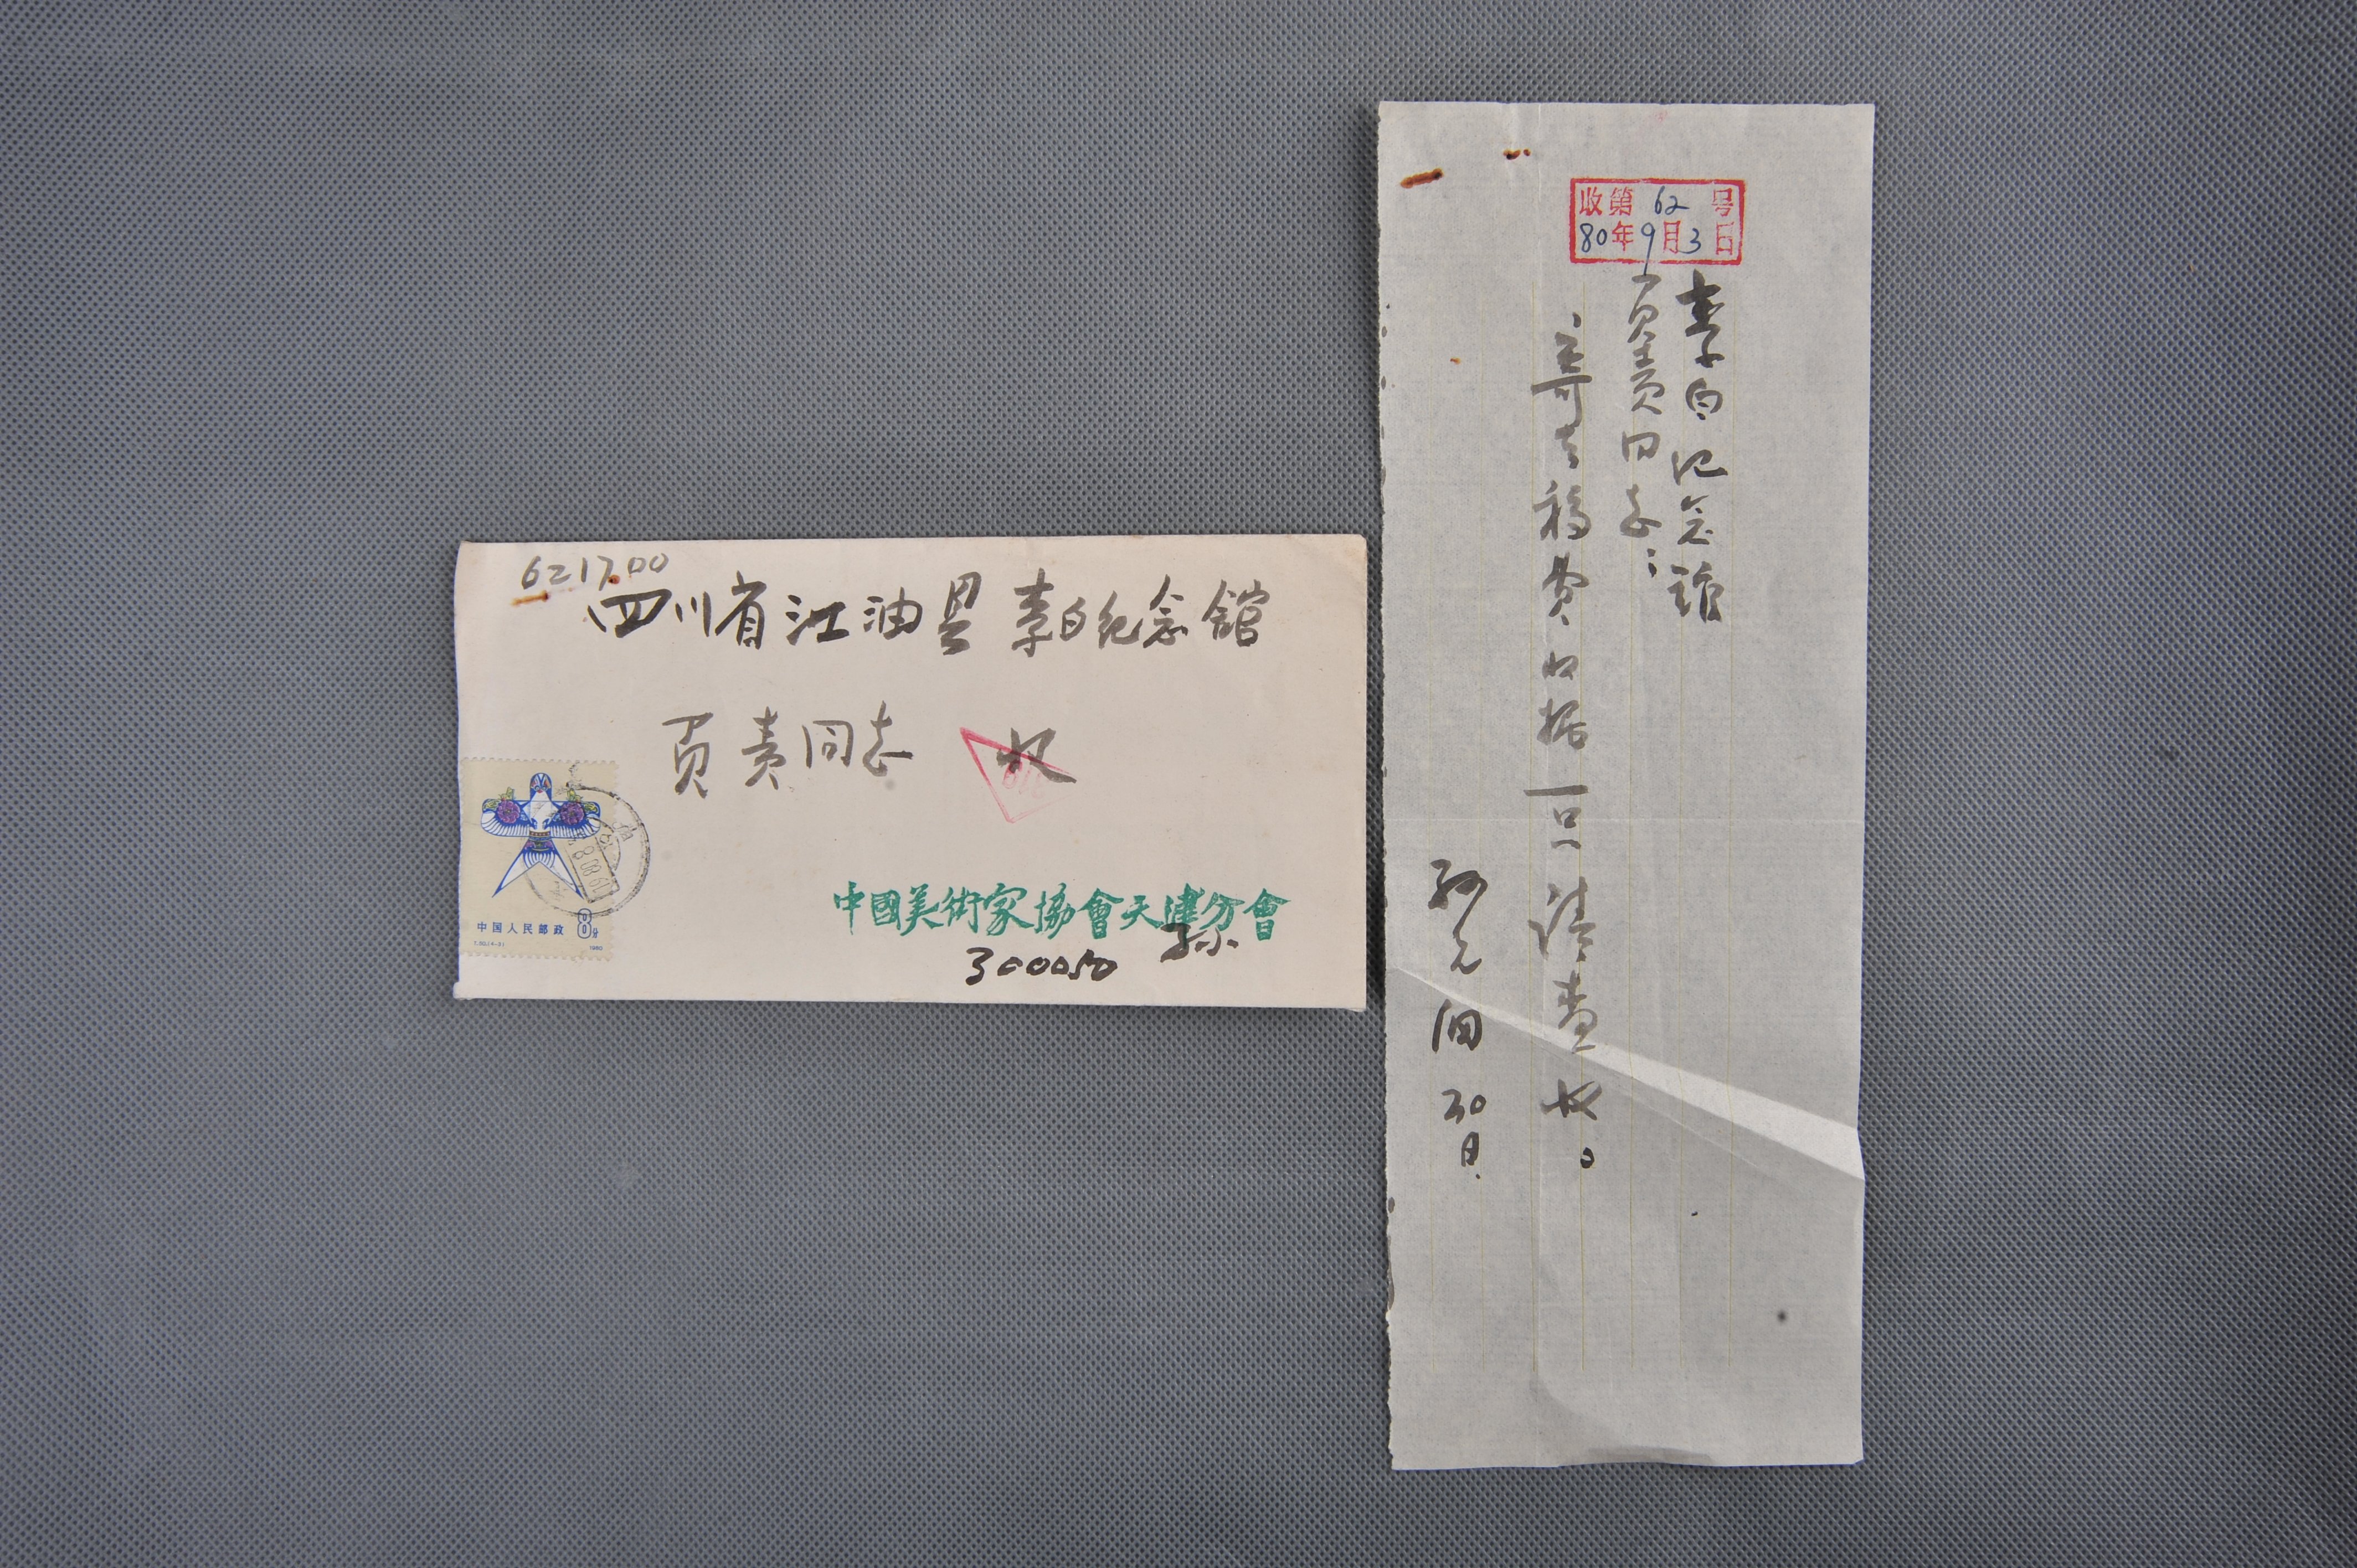 621700
四川省江油县 李白纪念馆
负责同志 收
中国人民邮政 8分
T.50.(4-3) 1980
中國美術家協會天津分會
孙
300050
收第 62 号
80年9月3日
李白纪念馆
负责同志：
寄去稿费收据一只请查收。
孙其峰 30日